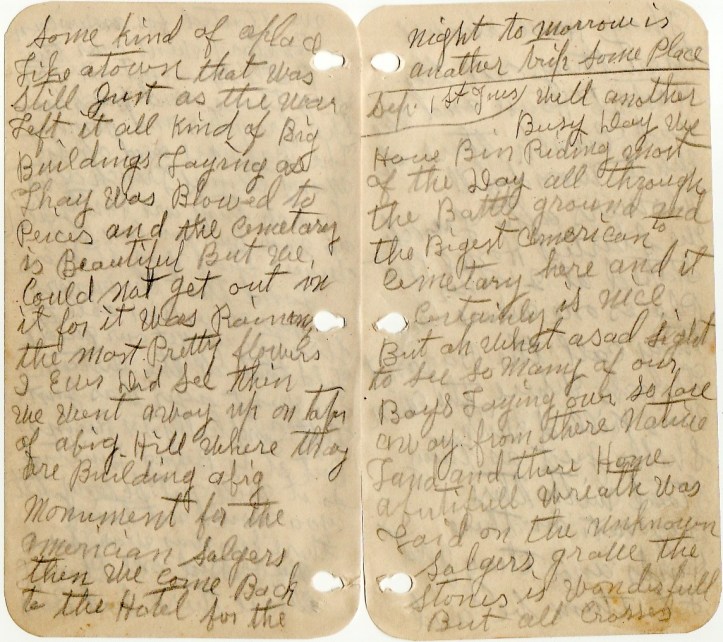 Some kind of a place
Like a town that was
Still Just as the war
Left it all kind of Big
Buildings Laying as
Thay Was Blowed to
Peices and the Cemetary
is Beautiful But We
Could not get out in
it for it Was Raining
the most Pretty flowers
I Ever Did See then
We Went away up on top
of a big Hill Where thay
are Building a big
Monument for the
American Salgers
then We Come Back
to the Hotel for the
Night to morrow is
another trip Some Place
Sep. 1st Tues Well another
Busy Day We
Have Bin Riding most
of the Day all through
the Battle ground and
to
the Bigest American
Cemetary here and it
Certainly is nice
But oh What a sad Sight
to See So Many of our
Boys Laying our So fare
away from there Native
Land and there Home
a butifull Wreath Was
Laid on the Unknown
Salgers grave the
Stones is Wonderfull
But all Crosses